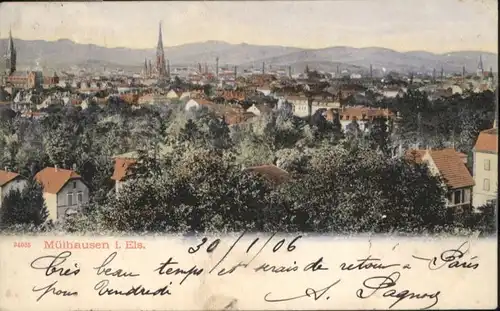 34605 Mülhausen i. Els.
30/1/06
Très beau temps et serais de retour à Paris
pour Vendredi A. Pagnoz